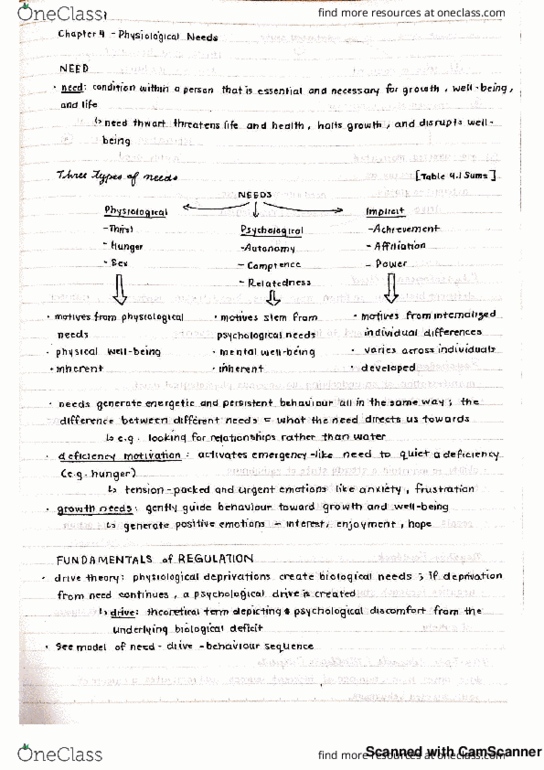 OneClass
find more resources at oneclass.com
Chapter 4 - Physiological Needs
NEED
• need: condition within a person that is essential and necessary for growth, well-being,
and life
↳ need thwart threatens life and health, halts growth, and disrupts well-
being
Three types of needs [Table 4.1 Sums]
NEEDS
Physiological Psychological Implicit
-Thirst -Autonomy -Achievement
-Hunger -Comptence -Affiliation
-Sex -Relatedness -Power
• motives from physiological • motives stem from • motives from internalized
needs psychological needs individual differences
• physical well-being • mental well-being • varies across individuals
• inherent • inherent • developed
• needs generate energetic and persistent behaviour all in the same way; the
difference between different needs = what the need directs us towards
↳ e.g. looking for relationships rather than water
• deficiency motivation: activates emergency-like need to quiet a deficiency
(e.g. hunger)
↳ tension-packed and urgent emotions like anxiety, frustration
• growth needs: gently guide behaviour toward growth and well-being
↳ generate positive emotions - interest, enjoyment, hope
FUNDAMENTALS of REGULATION
• drive theory: physiological deprivations create biological needs; if deprivation
from need continues, a psychological drive is created
↳ drive: theoretical term depicting psychological discomfort from the
underlying biological deficit
• See model of need-drive-behaviour sequence
OneClass
find more resources at oneclass.com
Scanned with CamScanner